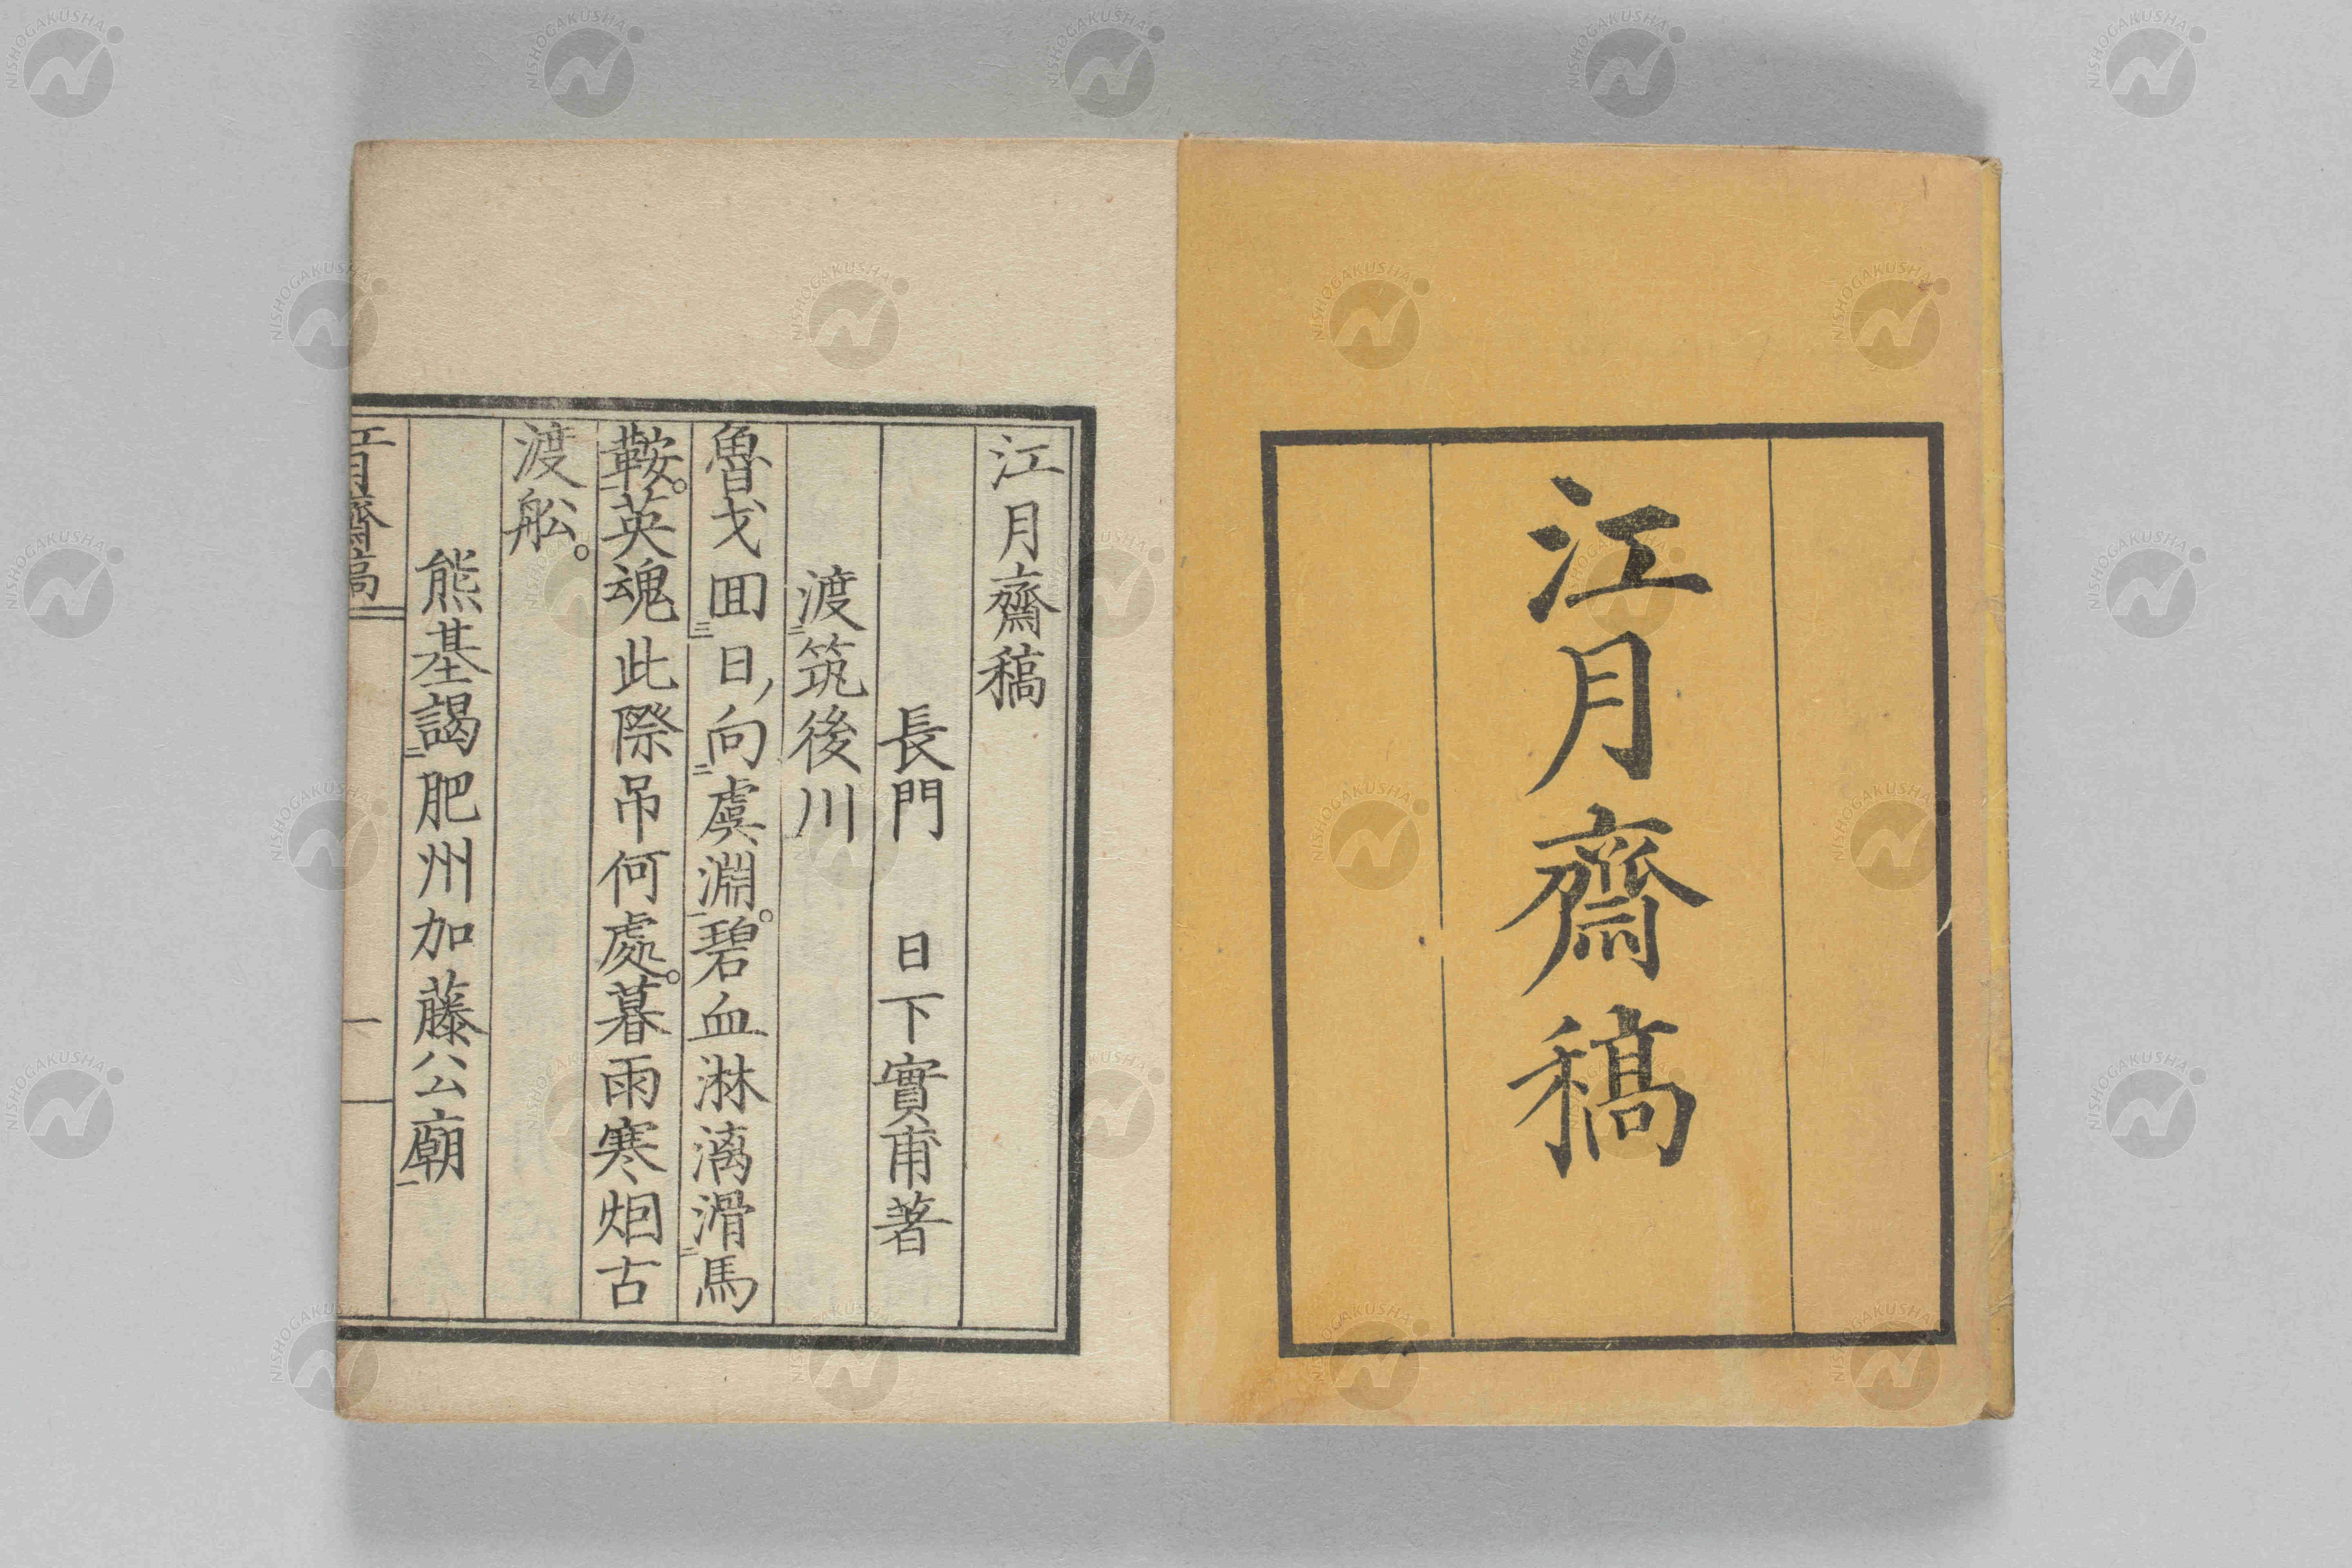 江月齋稿
江月齋稿
長門 日下實甫著
渡筑後川
魯戈囬日向虞淵。碧血淋漓滑馬
鞍。英魂此際吊何處。暮雨寒烟古
渡舩。
熊基謁肥州加藤公廟
江月齋稿
一
NISHOGAKUSHA